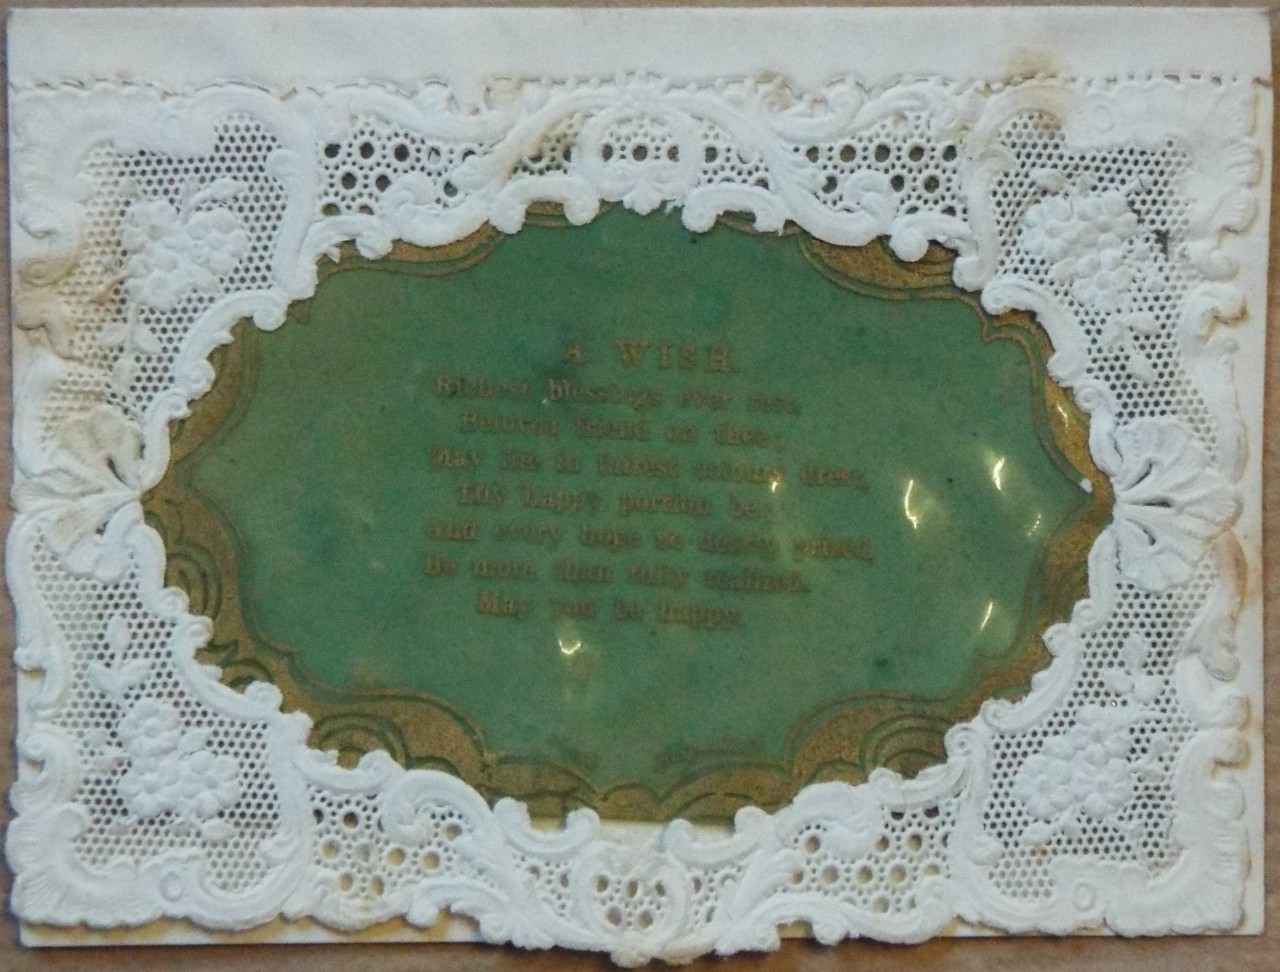 A WISH.
Richest blessings ever rest,
Beloved friend on thee;
May life in fairest colours drest,
Thy happy portion be:
And every hope so dearly prized,
Be more than fully realized.
May you be happy.